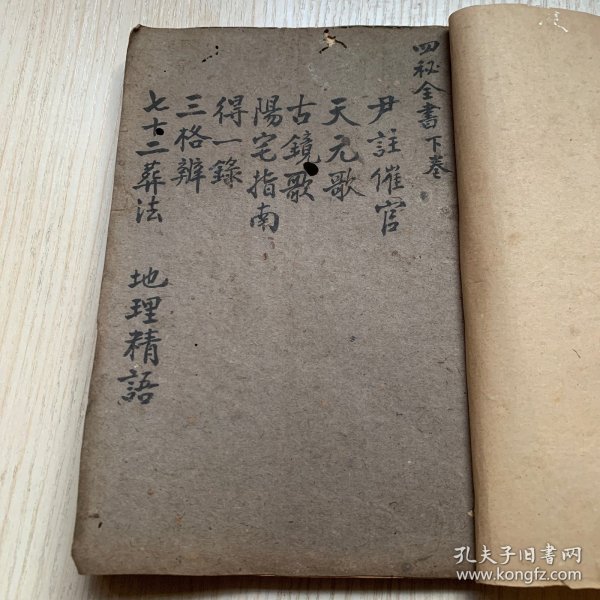 四秘全書下卷
尹註催官
天元歌
古鏡歌
陽宅指南
得一錄
三格辨
七十二葬法
地理精語
孔夫子旧书网
www.kongfz.com